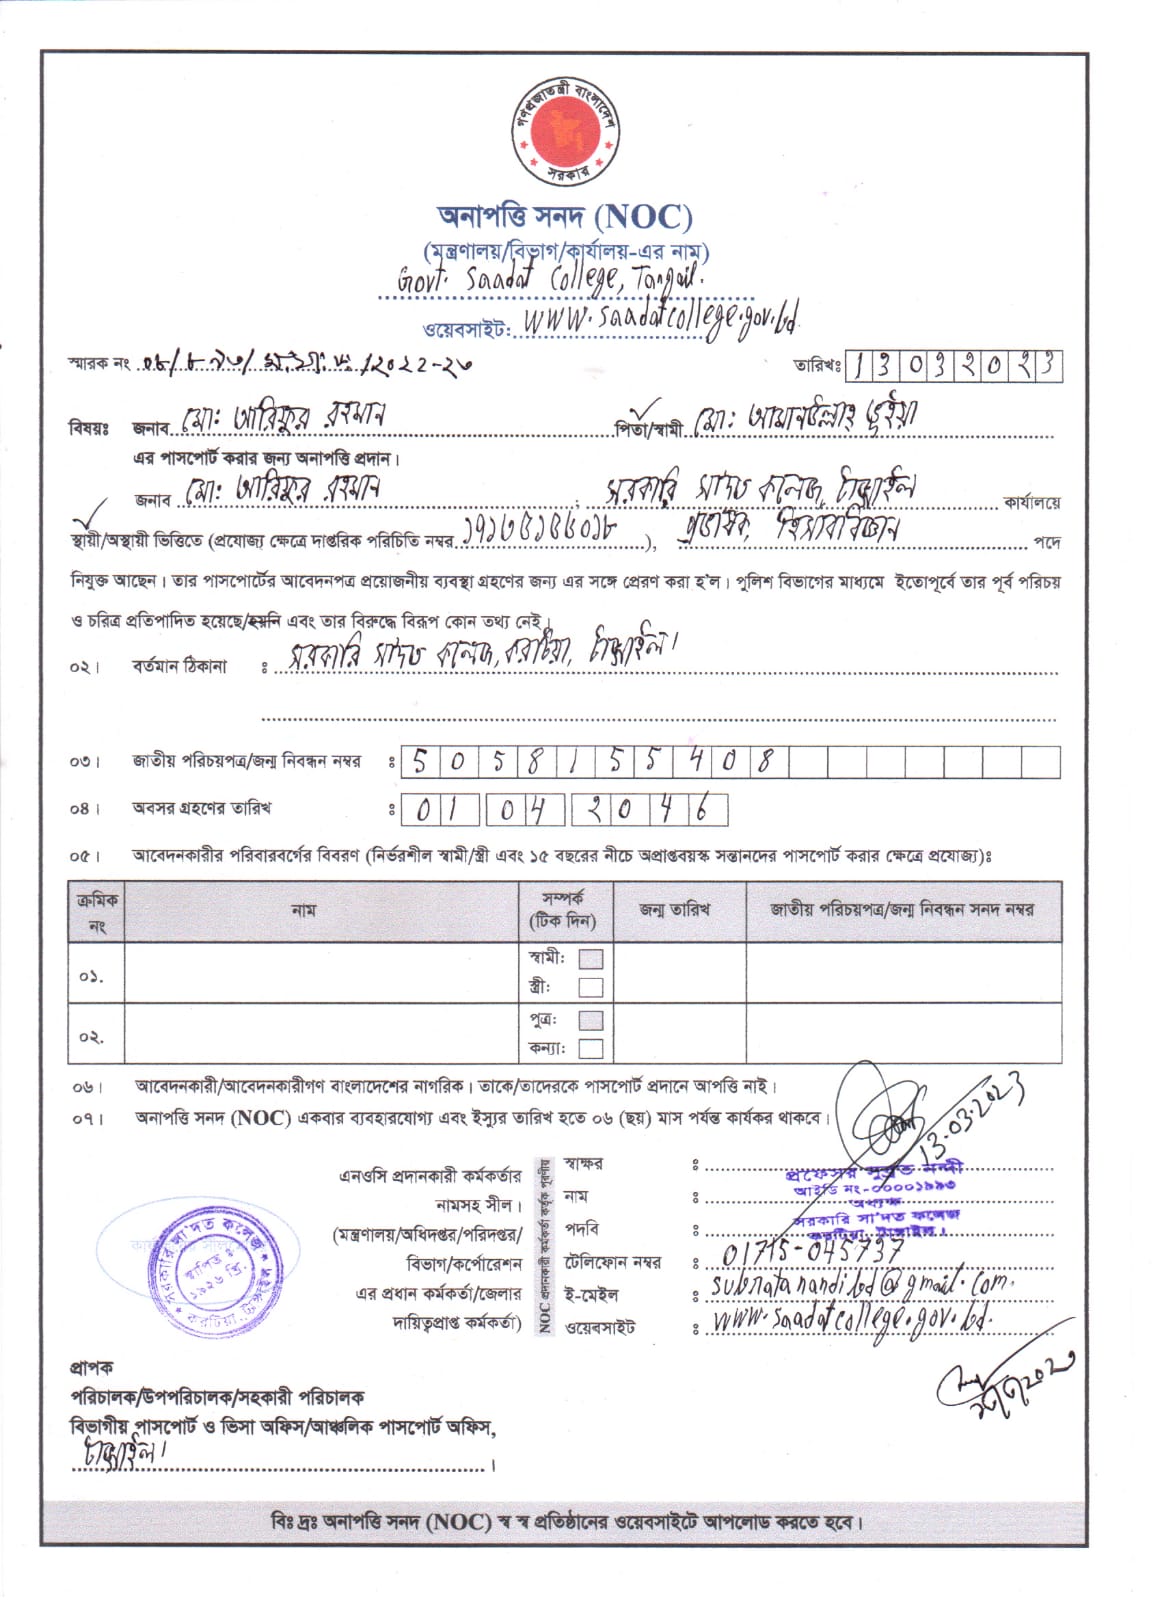 গণপ্রজাতন্ত্রী বাংলাদেশ
সরকার
অনাপত্তি সনদ (NOC)
(মন্ত্রণালয়/বিভাগ/কার্যালয়-এর নাম)
Govt. Saadat College, Tangail.
ওয়েবসাইট: www.saadatcollege.gov.bd
স্মারক নং /২০২২-২৩
তারিখঃ 13032023
বিষয়ঃ জনাব মো: আরিফুর রহমান পিতা/স্বামী মো: আমানউল্লাহ ভূইয়া
এর পাসপোর্ট করার জন্য অনাপত্তি প্রদান।
জনাব মো: আরিফুর রহমান , সরকারি সা'দত কলেজ, টাঙ্গাইল কার্যালয়ে
স্থায়ী/অস্থায়ী ভিত্তিতে (প্রযোজ্য ক্ষেত্রে দাপ্তরিক পরিচিতি নম্বর ), প্রভাষক, হিসাববিজ্ঞান পদে
নিযুক্ত আছেন। তার পাসপোর্টের আবেদনপত্র প্রয়োজনীয় ব্যবস্থা গ্রহণের জন্য এর সঙ্গে প্রেরণ করা হ'ল। পুলিশ বিভাগের মাধ্যমে ইতোপূর্বে তার পূর্ব পরিচয়
ও চরিত্র প্রতিপাদিত হয়েছে/হয়নি এবং তার বিরুদ্ধে বিরূপ কোন তথ্য নেই।
০২। বর্তমান ঠিকানা : সরকারি সা'দত কলেজ, করটিয়া, টাঙ্গাইল।
০৩। জাতীয় পরিচয়পত্র/জন্ম নিবন্ধন নম্বর : 5058155408
০৪। অবসর গ্রহণের তারিখ : 01 04 2046
০৫। আবেদনকারীর পরিবারবর্গের বিবরণ (নির্ভরশীল স্বামী/স্ত্রী এবং ১৫ বছরের নীচে অপ্রাপ্তবয়স্ক সন্তানদের পাসপোর্ট করার ক্ষেত্রে প্রযোজ্য)ঃ
ক্রমিক নং নাম সম্পর্ক (টিক দিন) জন্ম তারিখ জাতীয় পরিচয়পত্র/জন্ম নিবন্ধন সনদ নম্বর
০১. স্বামী:
স্ত্রী:
০২. পুত্র:
কন্যা:
০৬। আবেদনকারী/আবেদনকারীগণ বাংলাদেশের নাগরিক। তাকে/তাদেরকে পাসপোর্ট প্রদানে আপত্তি নাই।
০৭। অনাপত্তি সনদ (NOC) একবার ব্যবহারযোগ্য এবং ইস্যুর তারিখ হতে ০৬ (ছয়) মাস পর্যন্ত কার্যকর থাকবে।
13.03.2023
এনওসি প্রদানকারী কর্মকর্তার
নামসহ সীল।
(মন্ত্রণালয়/অধিদপ্তর/পরিদপ্তর/
বিভাগ/কর্পোরেশন
এর প্রধান কর্মকর্তা/জেলার
দায়িত্বপ্রাপ্ত কর্মকর্তা)
NOC প্রদানকারী কর্মকর্তা কর্তৃক পূরণীয়
স্বাক্ষর :
প্রফেসর সুব্রত নন্দী
আইডি নং-০০০০১৯৯৩
নাম :
অধ্যক্ষ
সরকারি সা'দত কলেজ
পদবি :
করটিয়া, টাঙ্গাইল।
টেলিফোন নম্বর : 01715-045737
ই-মেইল : subratanandi.bd@gmail.com.
ওয়েবসাইট : www.saadatcollege.gov.bd.
সরকারি সা'দত কলেজ
স্থাপিত
১৯২৬ খ্রি.
করটিয়া, টাঙ্গাইল
প্রাপক
পরিচালক/উপপরিচালক/সহকারী পরিচালক
বিভাগীয় পাসপোর্ট ও ভিসা অফিস/আঞ্চলিক পাসপোর্ট অফিস,
টাঙ্গাইল।
বিঃ দ্রঃ অনাপত্তি সনদ (NOC) স্ব স্ব প্রতিষ্ঠানের ওয়েবসাইটে আপলোড করতে হবে।